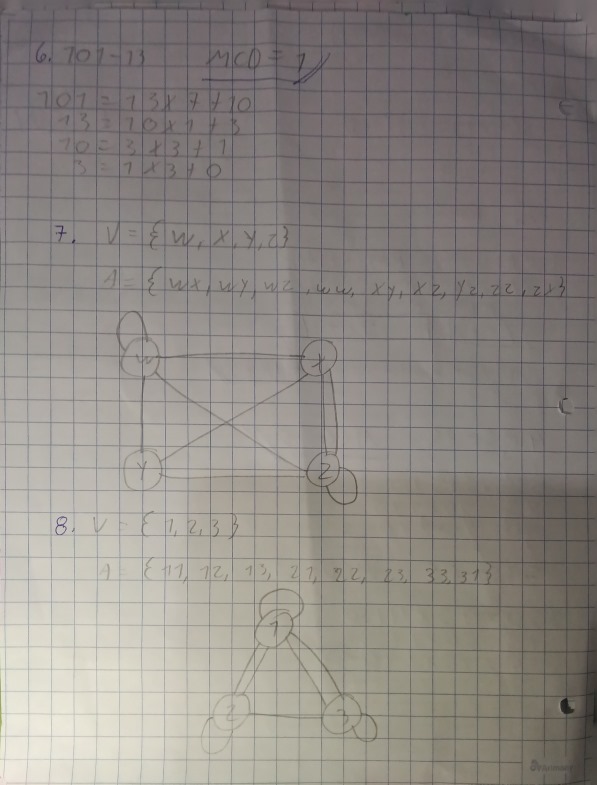 6. 101-13 MCD = 1
101 = 13 x 7 + 10
13 = 10 x 1 + 3
10 = 3 x 3 + 1
3 = 1 x 3 + 0
7. V = { w, x, y, z}
A = { wx, wy, wz, ww, xy, xz, yz, zz, zx}
w x
y z
8. V = { 1, 2, 3 }
A = {11, 12, 13, 21, 22, 23, 33, 31}
1
2 3